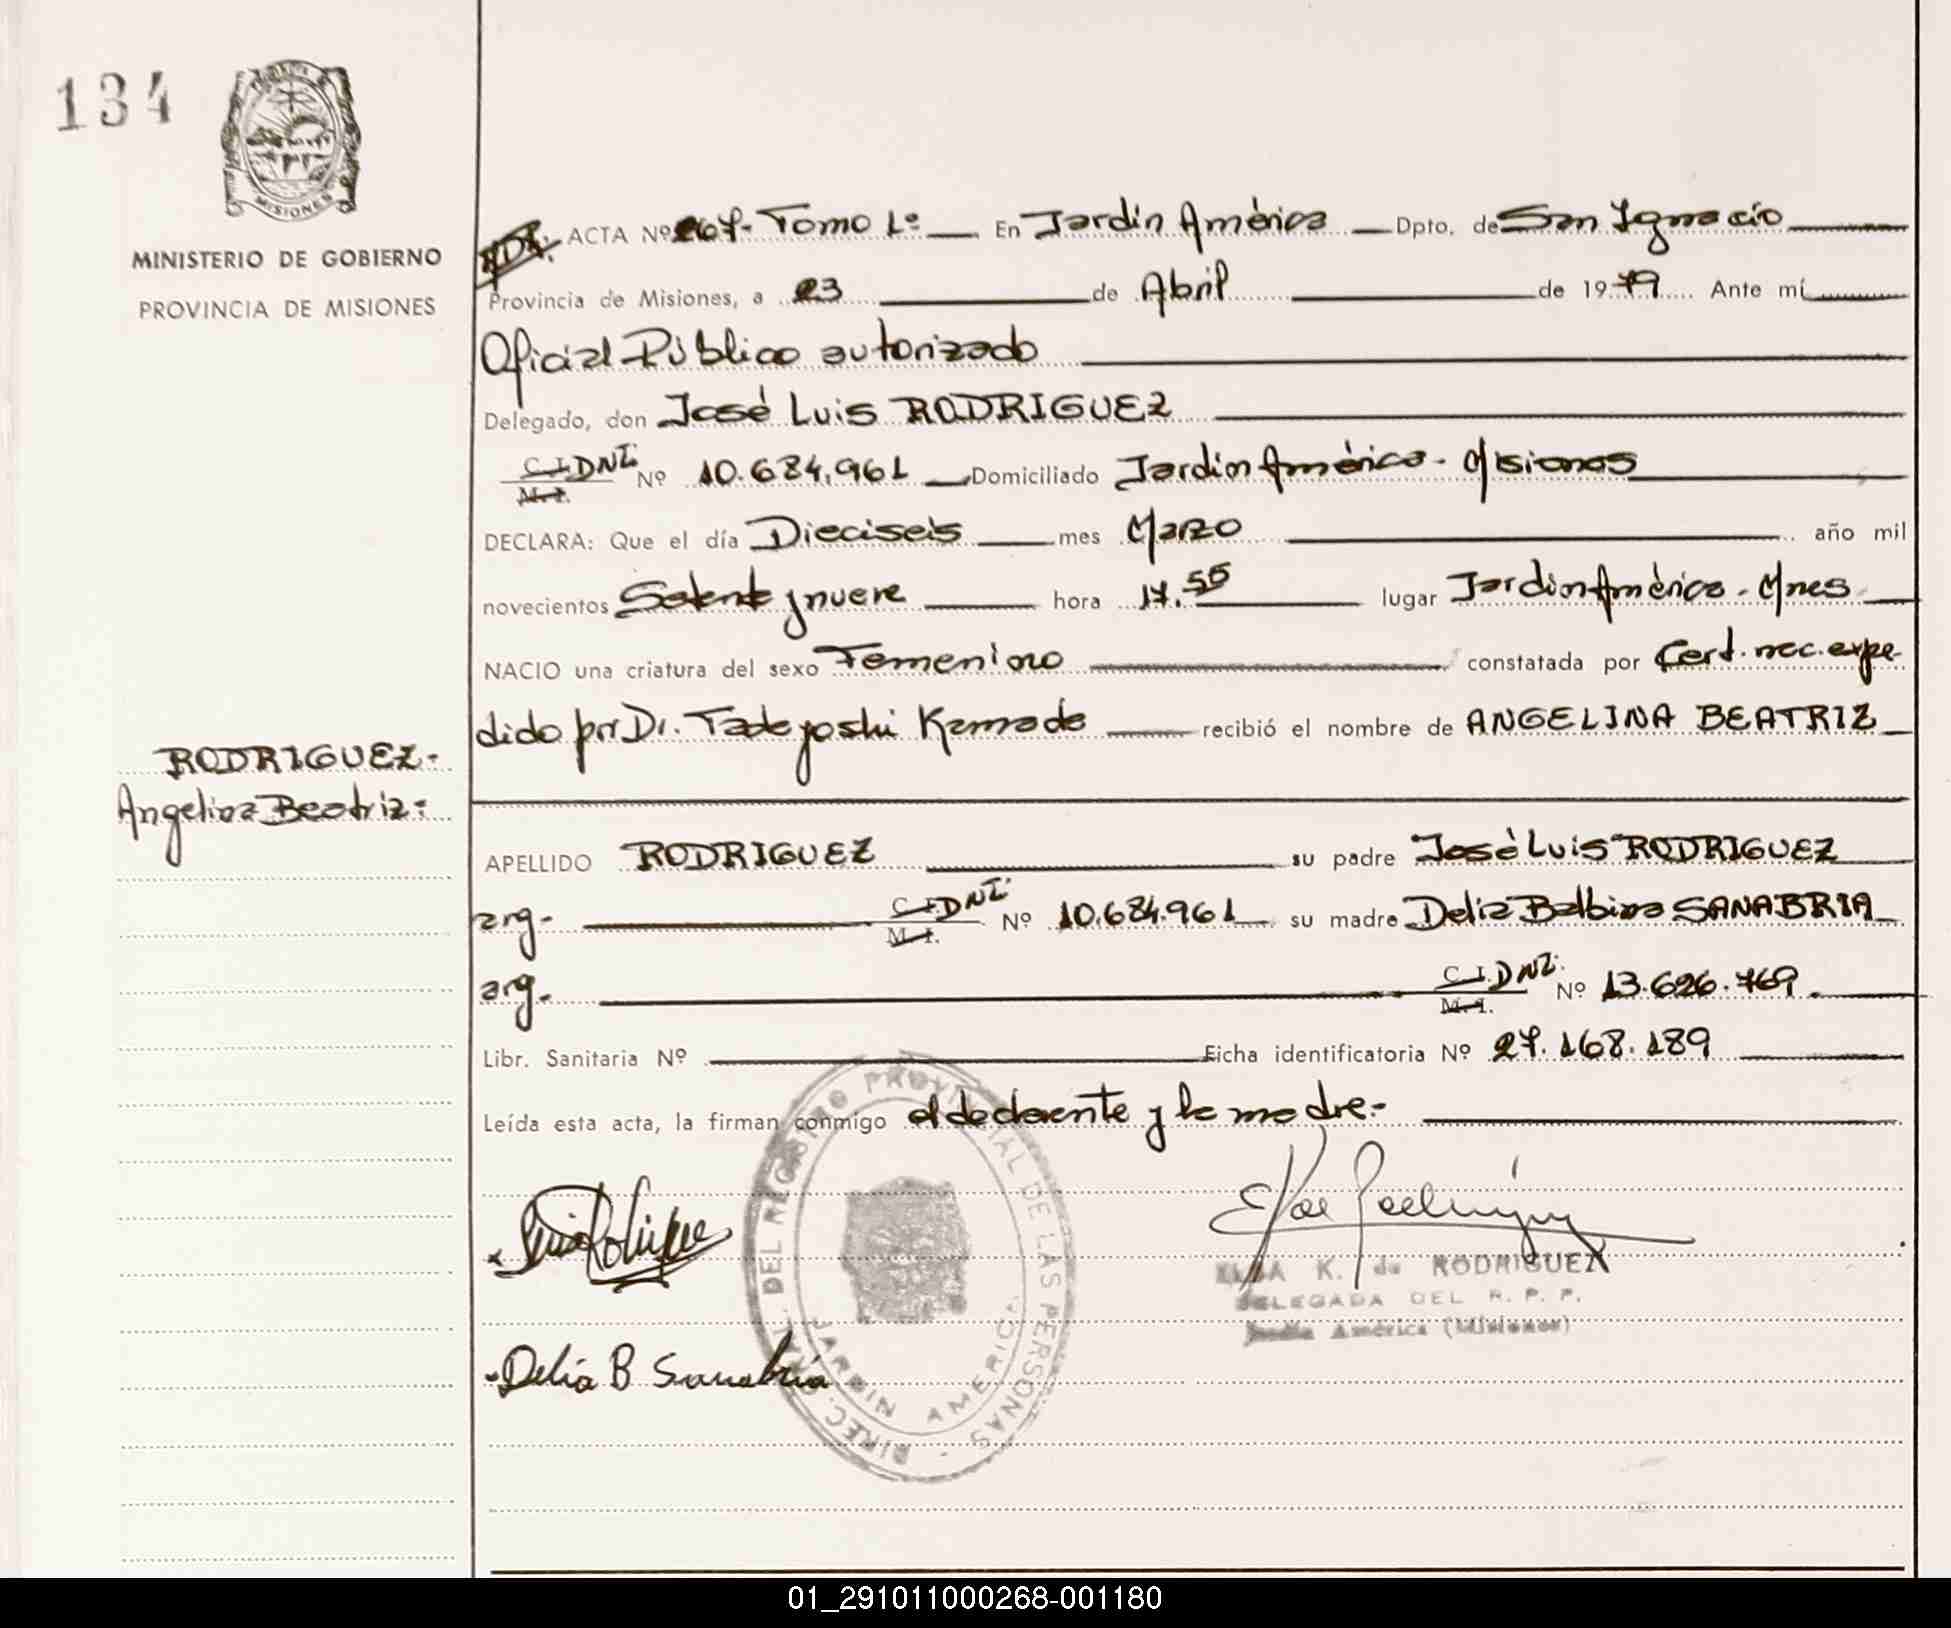 134
MISIONES
MINISTERIO DE GOBIERNO
PROVINCIA DE MISIONES
ACTA Nº 267- Tomo 1º En Jardín América Dpto. de San Ignacio
Provincia de Misiones, a 23 de Abril de 1979 Ante mí
Oficial Público autorizado
Delegado, don José Luis RODRIGUEZ
C.I. DNI. Nº 10.684.961 Domiciliado Jardín América - Misiones
M.I.
DECLARA: Que el día Dieciseis mes Marzo año mil
novecientos Setenta y nueve hora 17.55 lugar Jardín América - Mnes
NACIO una criatura del sexo Femenino constatada por Cert. nac. expe
dido por Dr. Tadeyoshi Kamada recibió el nombre de ANGELINA BEATRIZ
RODRIGUEZ-
Angelina Beatriz:
APELLIDO RODRIGUEZ su padre José Luis RODRIGUEZ
arg- C.I. DNI. Nº 10.684.961 su madre Delia Balbina SANABRIA
M.I.
arg- C.I. DNI. Nº 13.626.769
M.I.
Libr. Sanitaria Nº Ficha identificatoria Nº 27.168.189
Leída esta acta, la firman conmigo el declarante y la madre.-
DIREC. GRAL. DEL REGISTRO PROVINCIAL DE LAS PERSONAS
JARDIN AMERICA
ELSA K. de RODRIGUEZ
DELEGADA DEL R. P. P.
Jardín América (Misiones)
Delia B Sanabria
01_291011000268-001180